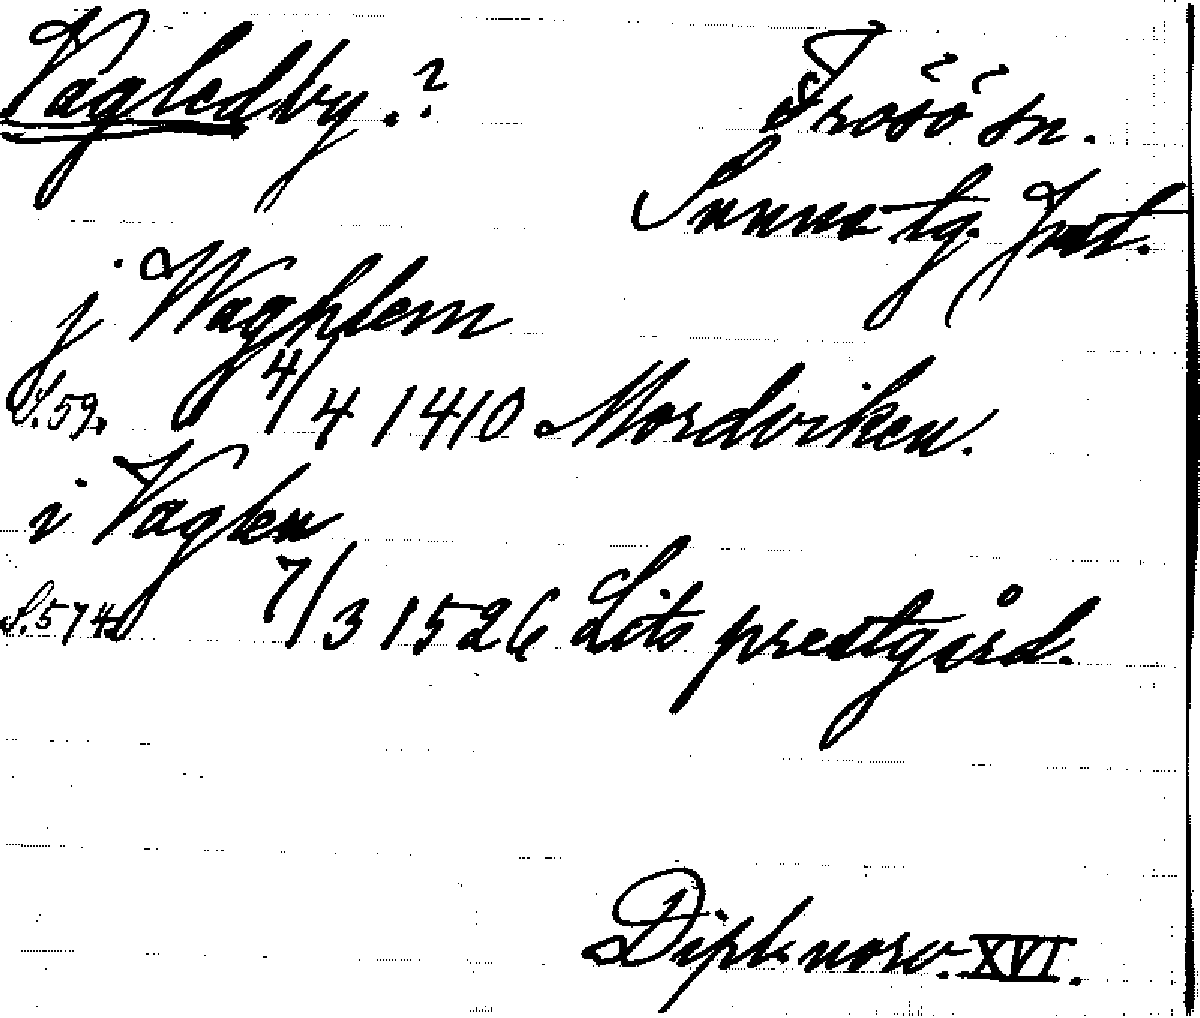 Vagledby.?
Frösö sn.
Sunne tg. Jmt.
j Waghlem
S. 59. 4/4 1410 Mordviken.
i Vaglen
S. 574 7/3 1526 Lits prestgård.
Dipl. norv. XVI.